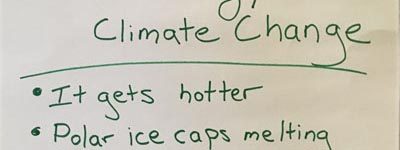 Climate Change
• It gets hotter
• Polar ice caps melting